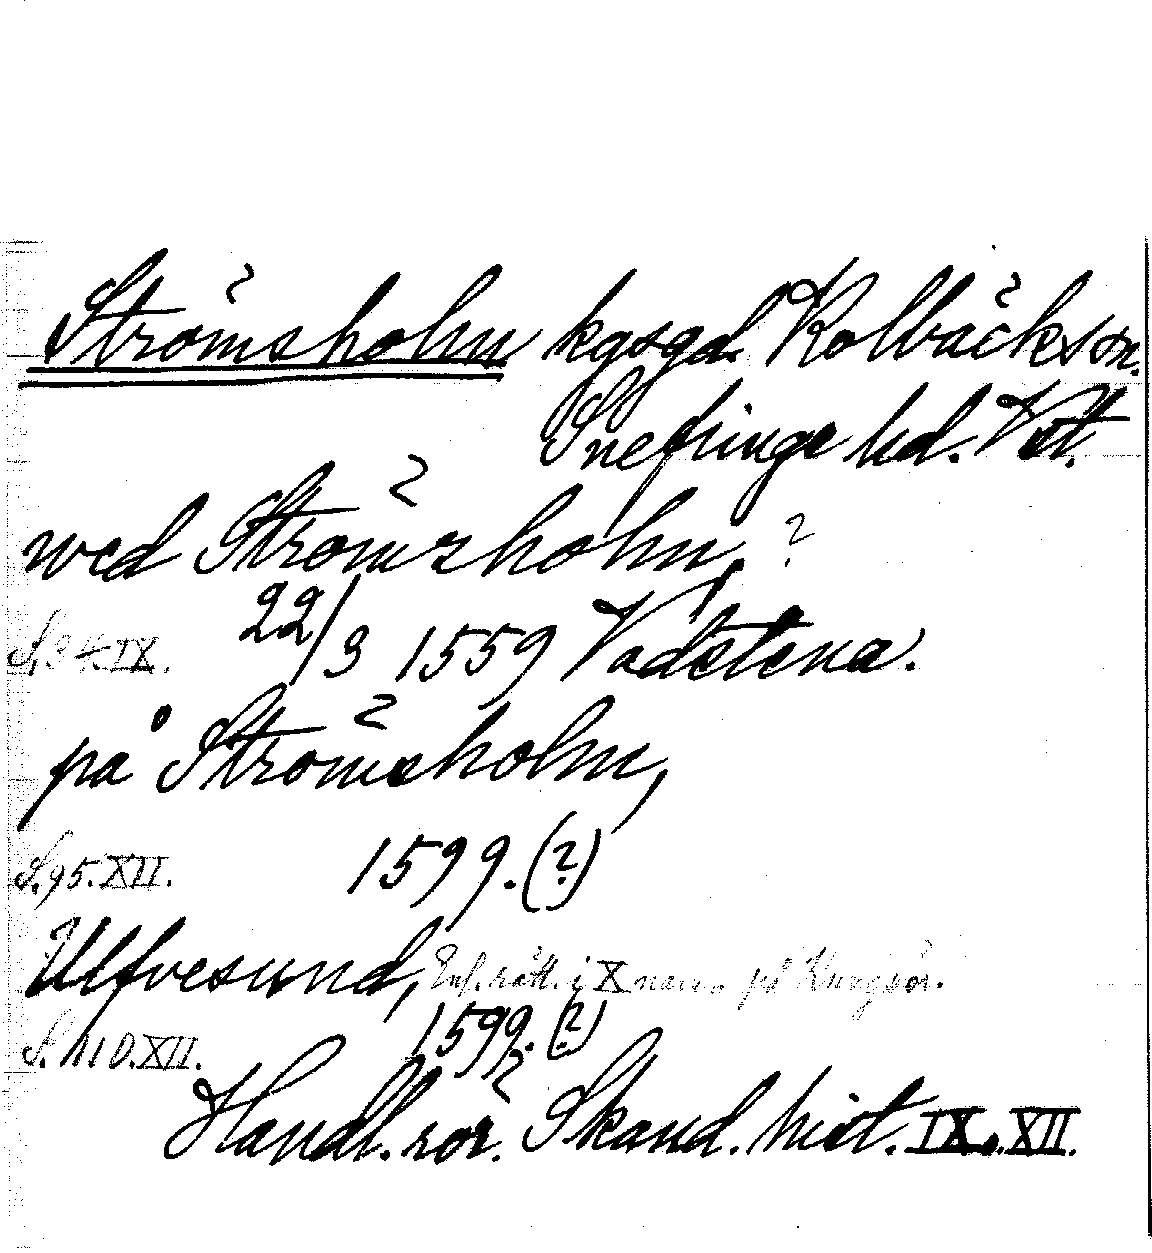 Strömsholm kgsgd. Kolbäcks sn.
Snefringe hd. Vstl.
wed Strömsholm, ?
S. 34. IX. 22/3 1559 Vadstena.
på Strömsholm,
S. 95. XII. 1599. (?)
Ulfvesund, Enl. rätt. i X namn på Kungsör.
S. 110. XII. 1599. (?)
Handl. rör. Skand. hist. IX, XII.